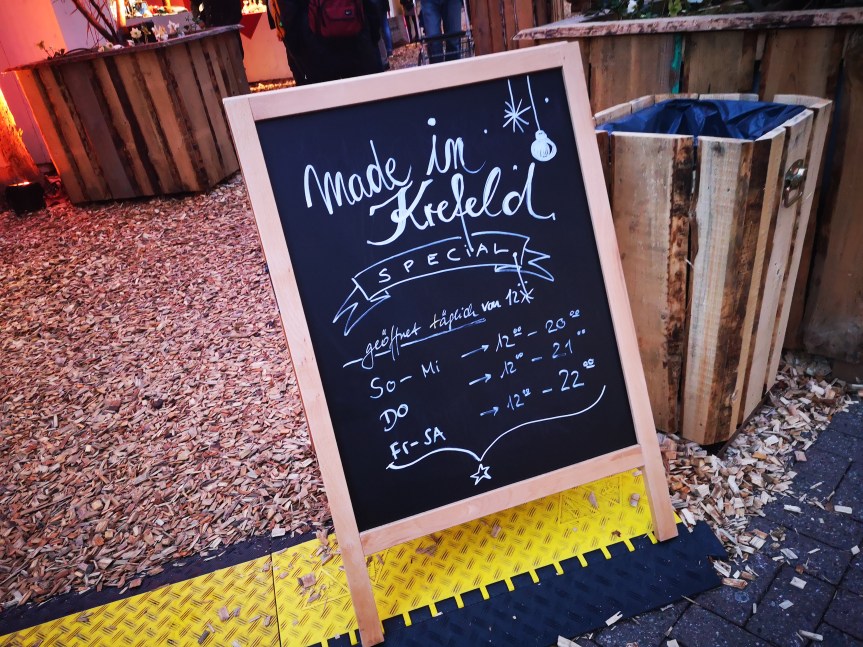 Made in
Krefeld
SPECIAL
geöffnet täglich von 12
So – Mi → 12⁰⁰ – 20⁰⁰
DO → 12⁰⁰ – 21⁰⁰
Fr – SA → 12⁰⁰ – 22⁰⁰